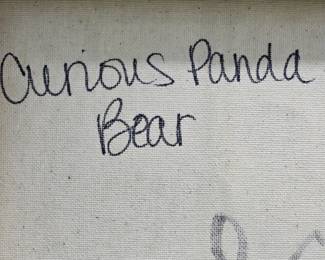 Curious Panda
Bear